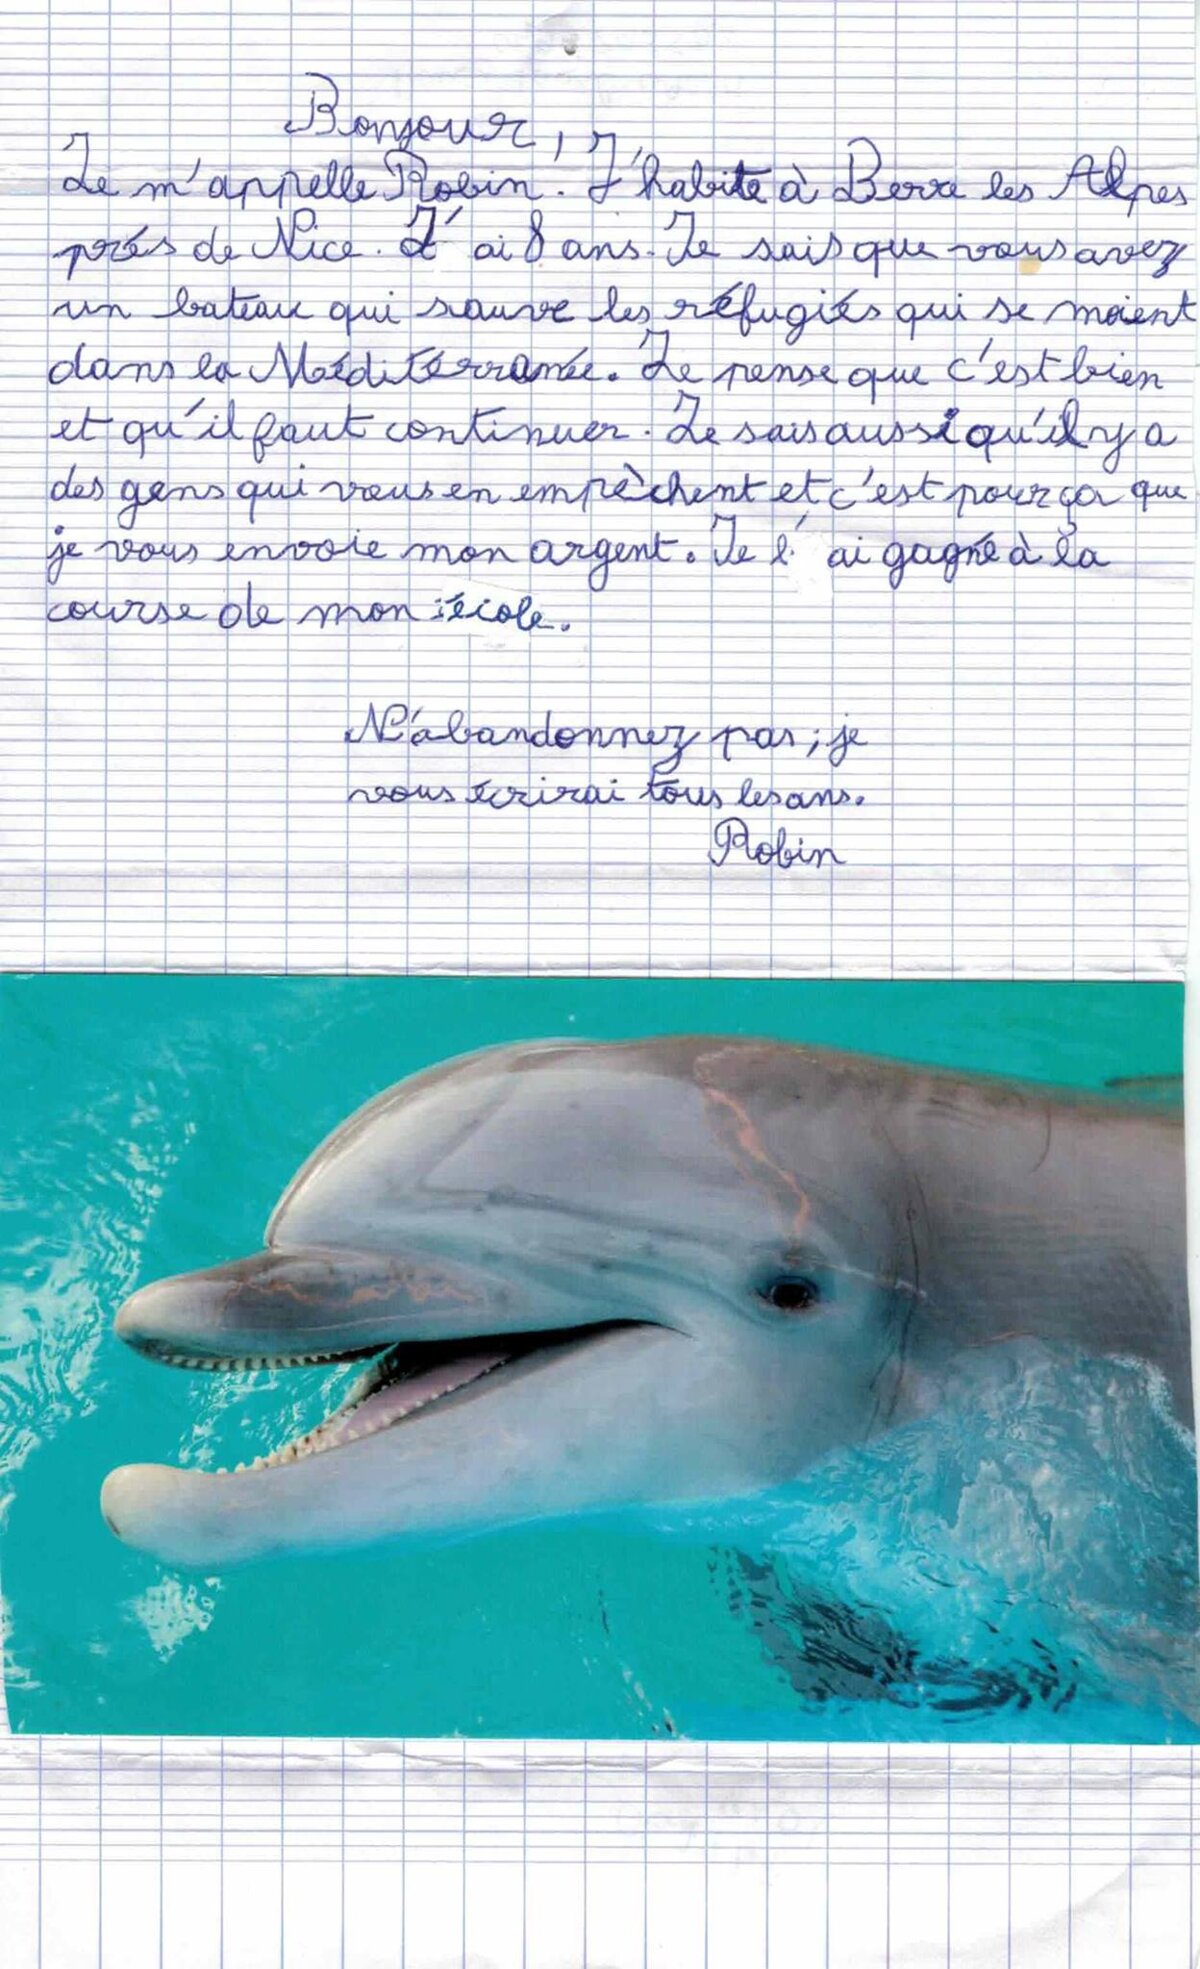 Bonjour,
Je m'appelle Robin. J'habite à Berre les Alpes
près de Nice. J'ai 8 ans. Je sais que vous avez
un bateau qui sauve les réfugiés qui se noient
dans la Méditerranée. Je pense que c'est bien
et qu'il faut continuer. Je sais aussi qu'il y a
des gens qui vous en empèchent et c'est pour ça que
je vous envoie mon argent. Je l'ai gagné à la
course de mon école.
N'abandonnez pas ; je
vous écrirai tous les ans.
Robin